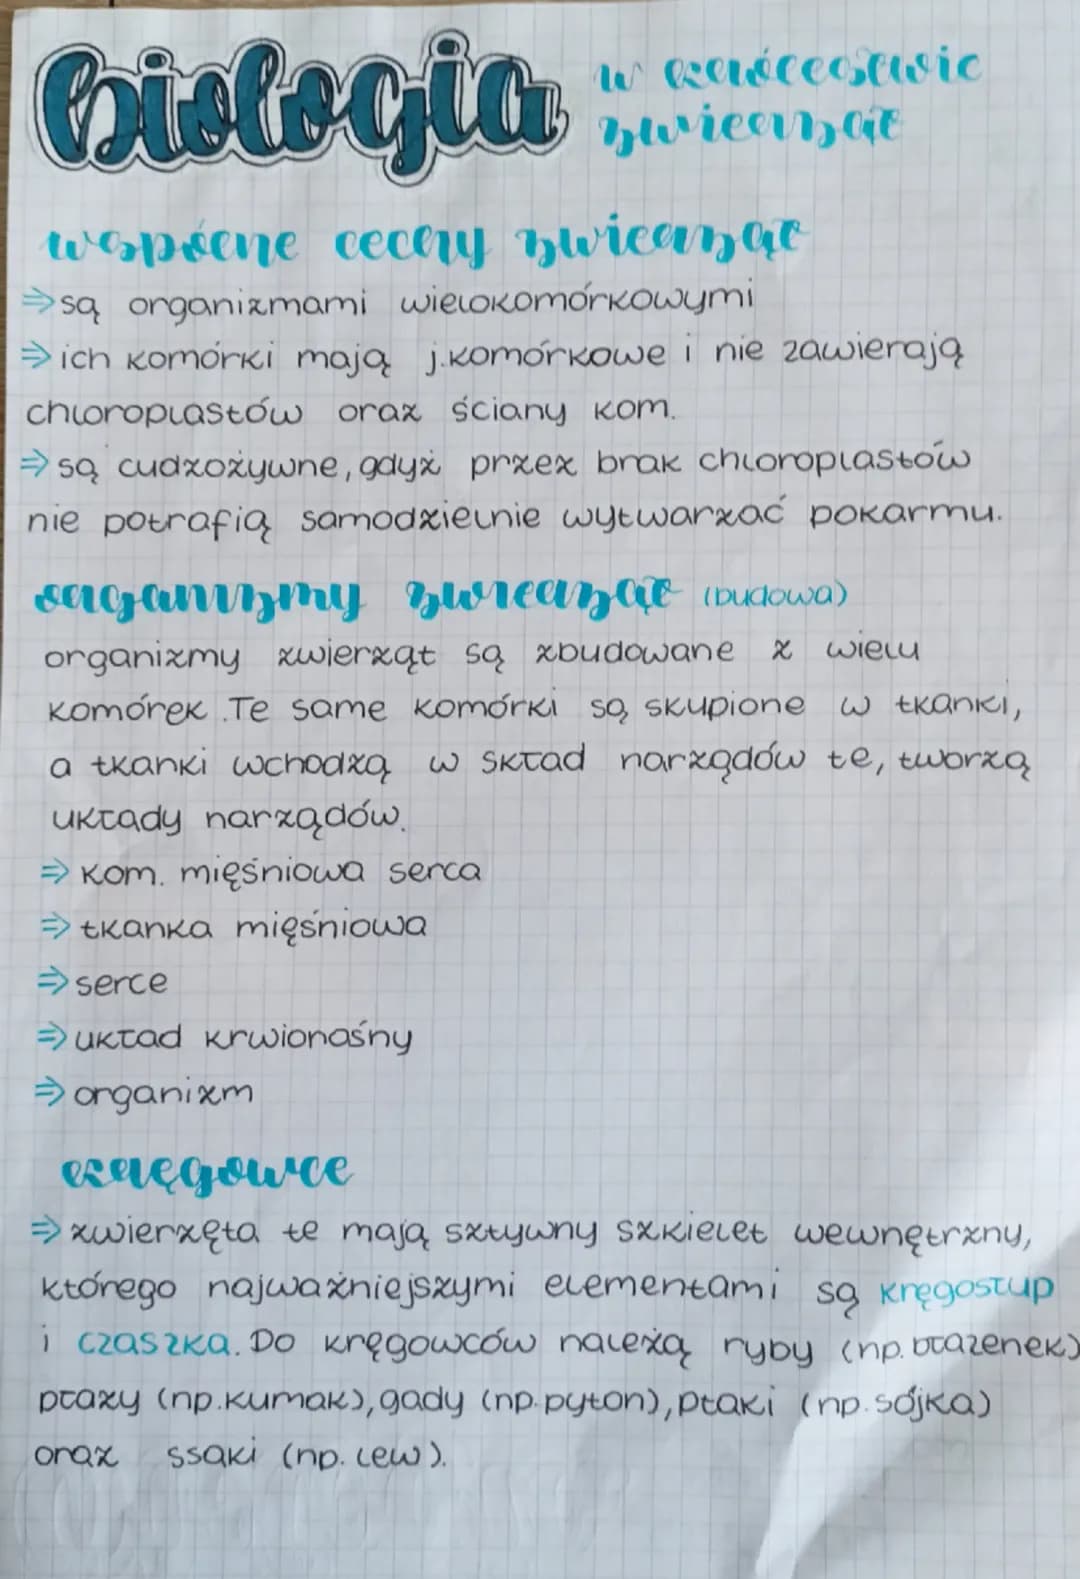 biologia w królestwie
zwierząt
wspólne cechy zwierząt
⇒ są organizmami wielokomórkowymi
⇒ ich komórki mają j.komórkowe i nie zawierają
chloroplastów oraz ściany kom.
⇒ są cudzożywne, gdyż przez brak chloroplastów
nie potrafią samodzielnie wytwarzać pokarmu.
organizmy zwierząt (budowa)
organizmy zwierząt są zbudowane z wielu
komórek. Te same komórki są skupione w tkanki,
a tkanki wchodzą w skład narządów te, tworzą
układy narządów.
⇒ kom. mięśniowa serca
⇒ tkanka mięśniowa
⇒ serce
⇒ układ krwionośny
⇒ organizm
kręgowce
⇒ zwierzęta te mają sztywny szkielet wewnętrzny,
którego najważniejszymi elementami są kręgosłup
i czaszka. Do kręgowców należą ryby (np. błazenek)
płazy (np. kumak), gady (np. pyton), ptaki (np. sójka)
oraz ssaki (np. lew).